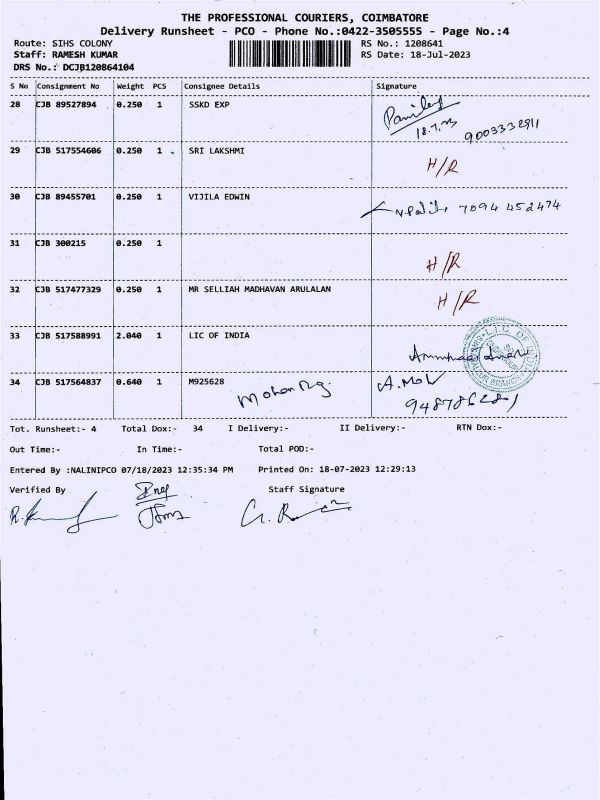 THE PROFESSIONAL COURIERS, COIMBATORE
Delivery Runsheet - PCO - Phone No.:0422-3505555 - Page No.:4
Route: SIHS COLONY RS No.: 1208641
Staff: RAMESH KUMAR RS Date: 18-Jul-2023
DRS No.: DCJB120864104
S No Consignment No Weight PCS Consignee Details Signature
28 CJB 89527894 0.250 1 SSKD EXP
18.7.23 9003332911
29 CJB 517554606 0.250 1 SRI LAKSHMI H/R
30 CJB 89455701 0.250 1 VIJILA EDWIN 7094 452474
31 CJB 300215 0.250 1 H/R
32 CJB 517477329 0.250 1 MR SELLIAH MADHAVAN ARULALAN H/R
33 CJB 517588991 2.040 1 LIC OF INDIA
34 CJB 517564837 0.640 1 M925628
Tot. Runsheet:- 4 Total Dox:- 34 I Delivery:- II Delivery:- RTN Dox:-
Out Time:- In Time:- Total POD:-
Entered By :NALINIPCO 07/18/2023 12:35:34 PM Printed On: 18-07-2023 12:29:13
Verified By Staff Signature